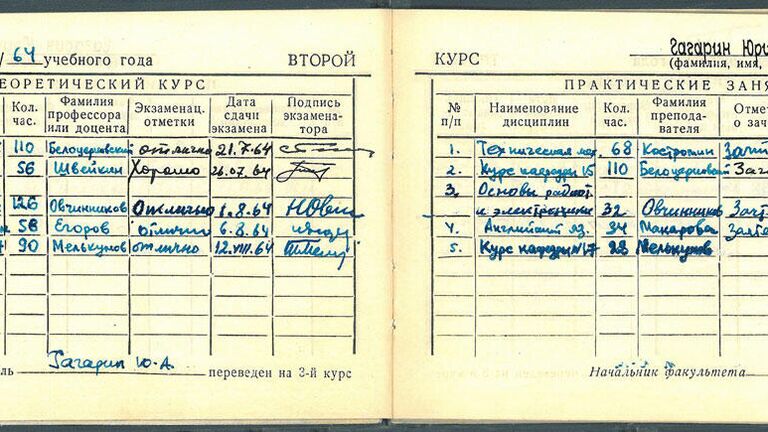 / 64 учебного года ВТОРОЙ
ТЕОРЕТИЧЕСКИЙ КУРС
Кол. час. Фамилия профессора или доцента Экзаменац. отметки Дата сдачи экзамена Подпись экзаменатора
110 Белоцерковский отлично 21.7.64
56 Швейкин Хорошо 26.07.64
126 Овчинников Отлично 1.8.64
58 Егоров отлично 6.8.64
90 Мелькумов отлично 12.VIII.64
Гагарин Ю.А. переведен на 3-й курс
КУРС Гагарин Юри
(фамилия, имя,
ПРАКТИЧЕСКИЕ ЗАНЯ
№ п/п Наименование дисциплин Кол. час. Фамилия преподавателя Отмет о зач
1. Техническая мех. 68 Зачт
2. Курс кафедры 15 110 Белоцерковский Зач
3. Основы радиот.
и электроники 32 Овчинников Зачт
4. Английский яз. 34 Макарова Зачте
5. Курс кафедры №17 28 Мелькумов
Начальник факультета